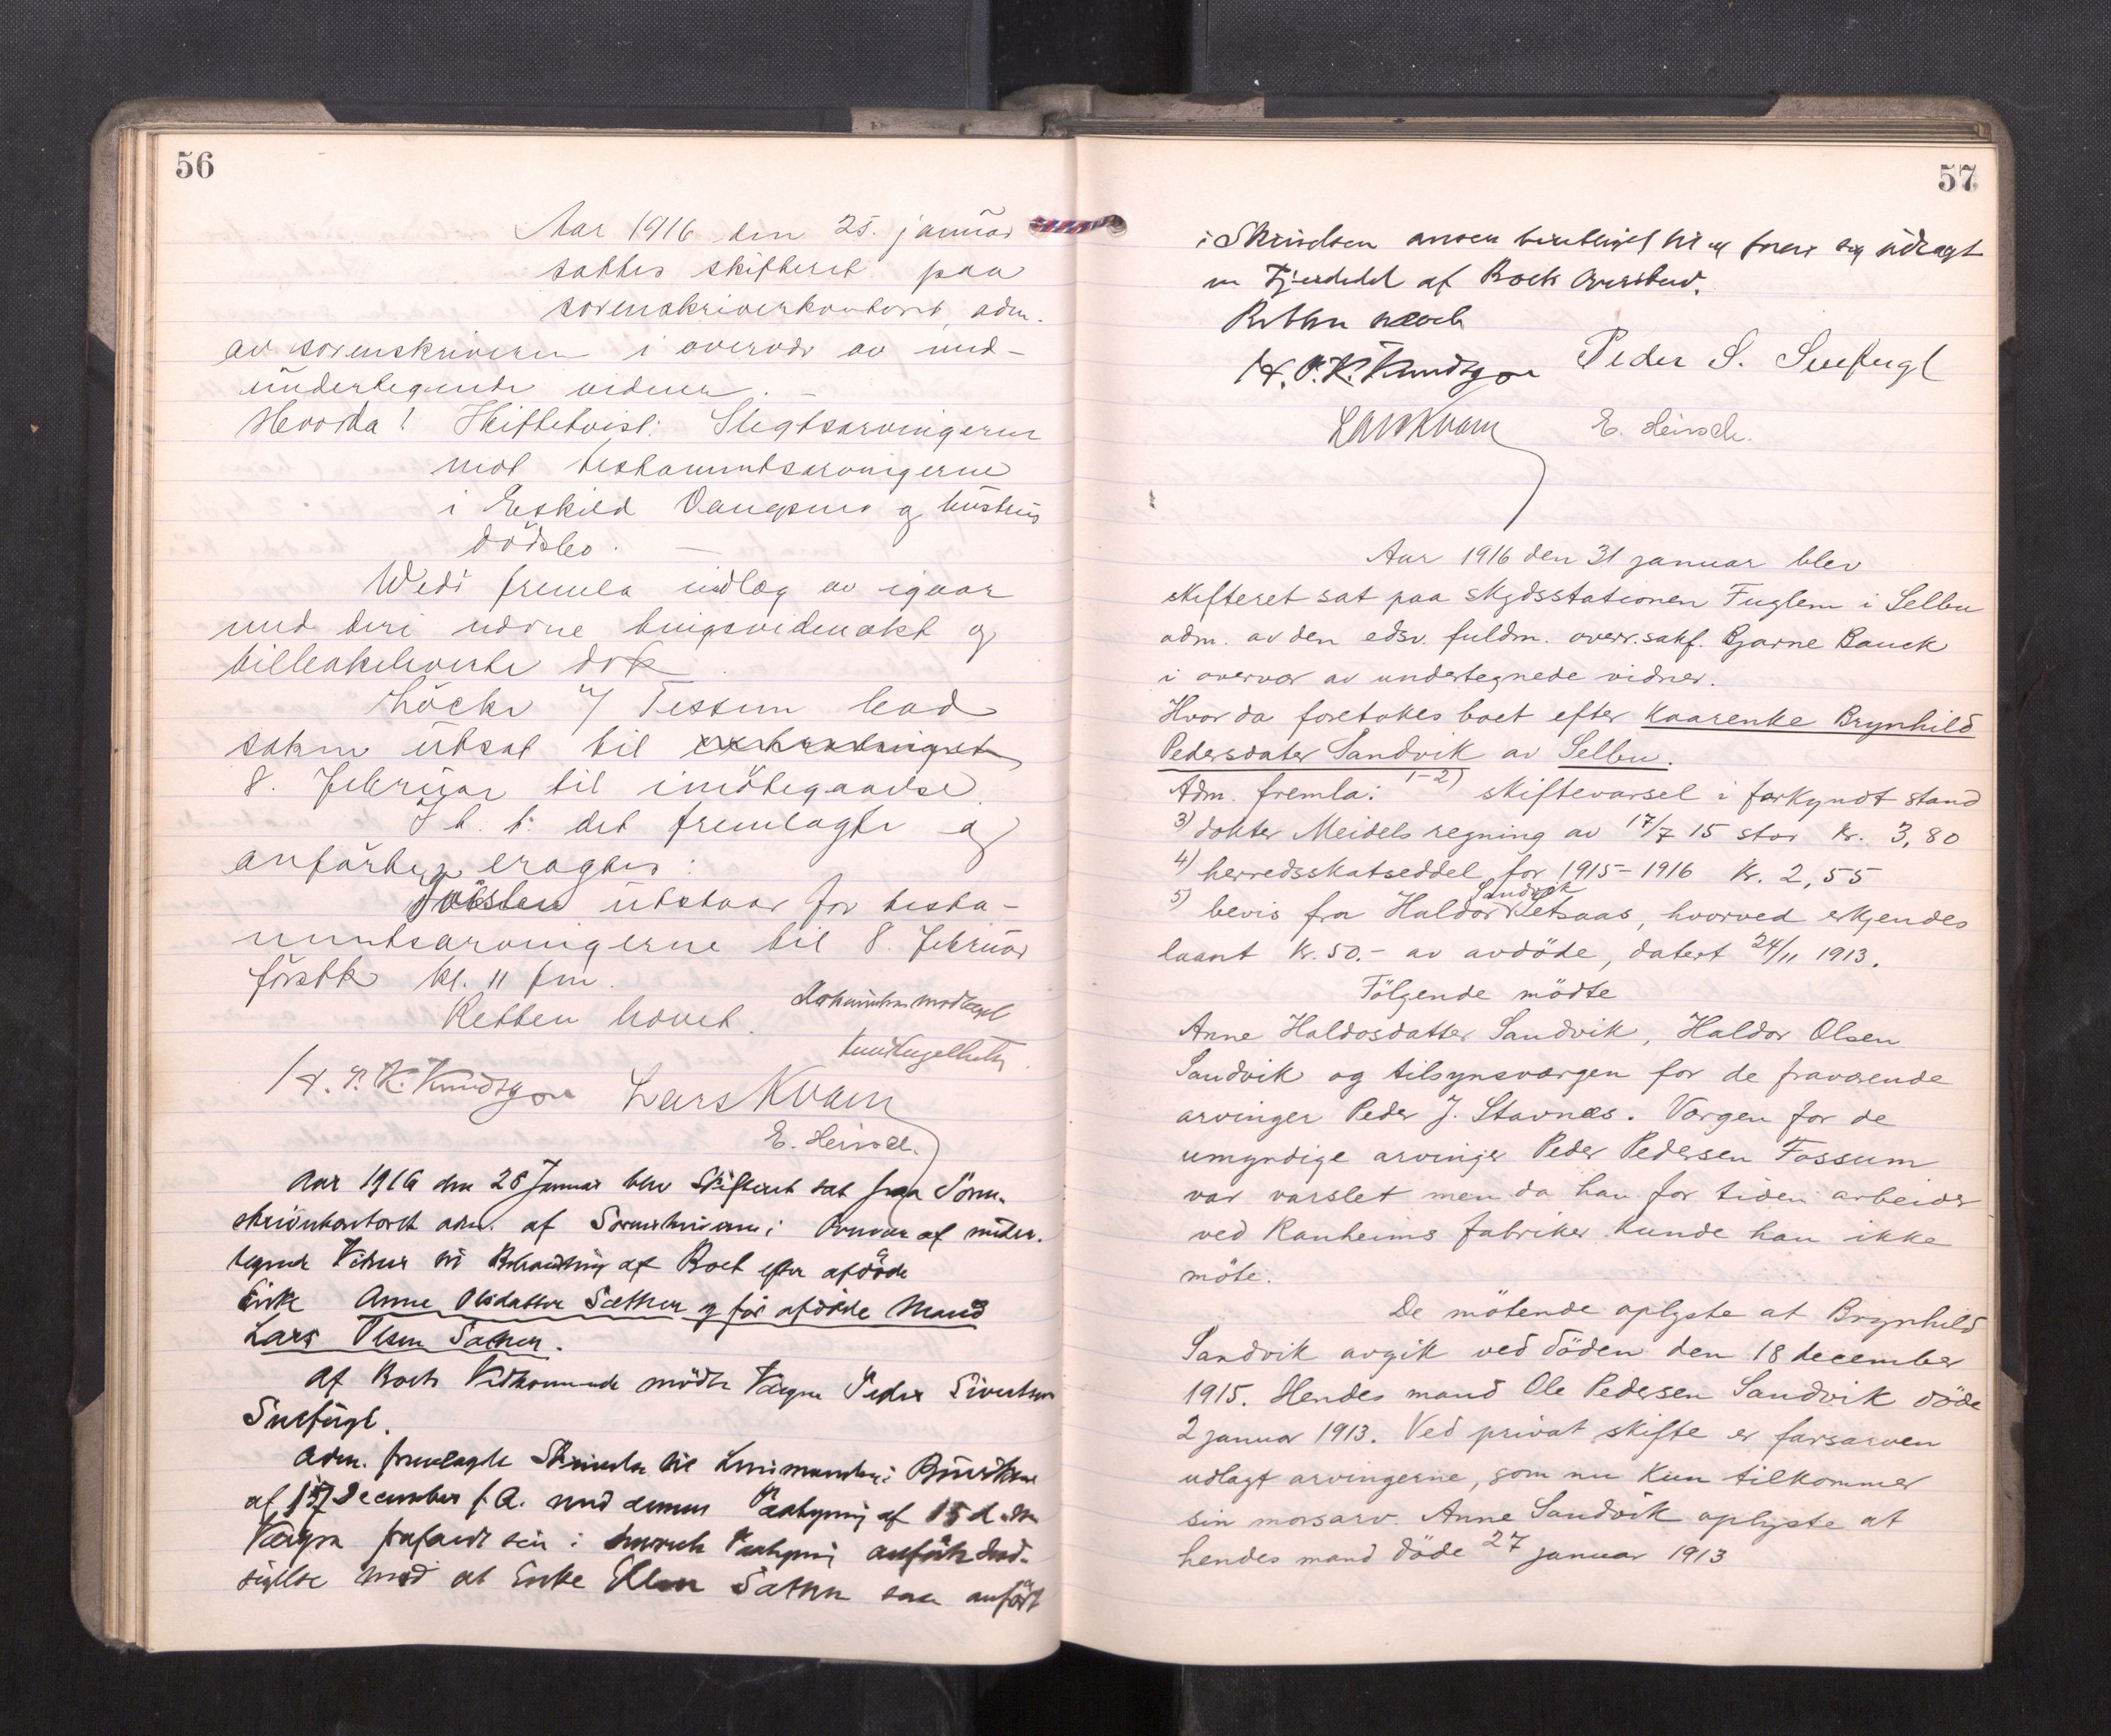 56
Aar 1916 den 25. januar
sattes skifteret paa
sorenskriverkontoret, adm.
av sorenskriveren i overvær av ned-
undertegnede vidner. -
Hvorda! Skiftetvist: Slegtsarvingerne
mot testamentsarvingerne
i Eskild Vangsmo og hustrus
dödsbo. -
Wedö fremla indlæg av igaar
med deri nævne tingsvidneakt og
dok.
Löcke Tessem bad
saken utsat til
8. Februar til imötegaaelse.
det fremlagte og
anförte, eragtes:
utstaar for testa-
mentsarvingerne til 8. Februar
förstk kl. 11 fm.
Retten hævet.
H. P. K. Knudtzon Lars Kvam
E. Heirsch.
Aar 1916 den 28 Januar blev Skifteret sat paa Soren-
skriverkontoret adm. af Sorenskriveren i Overvær af under-
tegnede Vidner til Behandling af Boet efter afdöde
Enke Anne Olsdatter Sæther og för afdöde Mand
Lars Olsen Sæther.
Af Boets Vedkommende mödte Værgen Peder Sivertsen
Suefugl.
Adm. fremlagte Skrivelse til Lensmanden i Buviken
af 17 December f. A. med dennes Paategning af 15 d. M.
Værgen frafaldt sin i Paategning anförte Ind-
sigelse mod at Enke Ellen Sæther som anfört
57
i Skrivelsen ansees berettiget til at faa sig udlagt
en Fjerdedel af Boets Overskud.
Retten hævet
H. P. K. Knudtzon Peder S. Suefugl
Lars Kvam E. Heirsch.
Aar 1916 den 31 januar blev
skifteret sat paa skydsstationen Fuglem i Selbu
adm. av den edsv. fuldm. overr.sakf. Bjarne Bauck
i overvær av undertegnede vidner.
Hvor da foretokes boet efter Kaarenke Brynhild
Pedersdater Sandvik av Selbu.
Adm. fremla: 1-2) skiftevarsel i forkyndt stand
3) dokter Meidels regning av 17/7 15 stor kr. 3,80
4) herredsskatseddel for 1915-1916 kr. 2,55
Sandvik
5) bevis fra Haldor Setsaas, hvorved erkjendes
laant kr. 50.- av avdöde, datert 24/11 1913.
Fölgende mödte
Anne Haldosdatter Sandvik, Haldor Olsen
Sandvik og tilsynsværgen for de fraværende
arvinger Peder J. Stavnes. Værgen for de
umyndige arvinger Peder Pedersen Fossum
var varslet men da han for tiden arbeider
ved Ranheims fabriker kunde han ikke
möte.
De mötende oplyste at Brynhild
Sandvik avgik ved döden den 18 december
1915. Hendes mand Ole Pedersen Sandvik döde
2 januar 1913. Ved privat skifte er farsarven
udlagt arvingerne, som nu kun tilkommer
sin morsarv. Anne Sandvik oplyste at
hendes mand döde 27 januar 1913